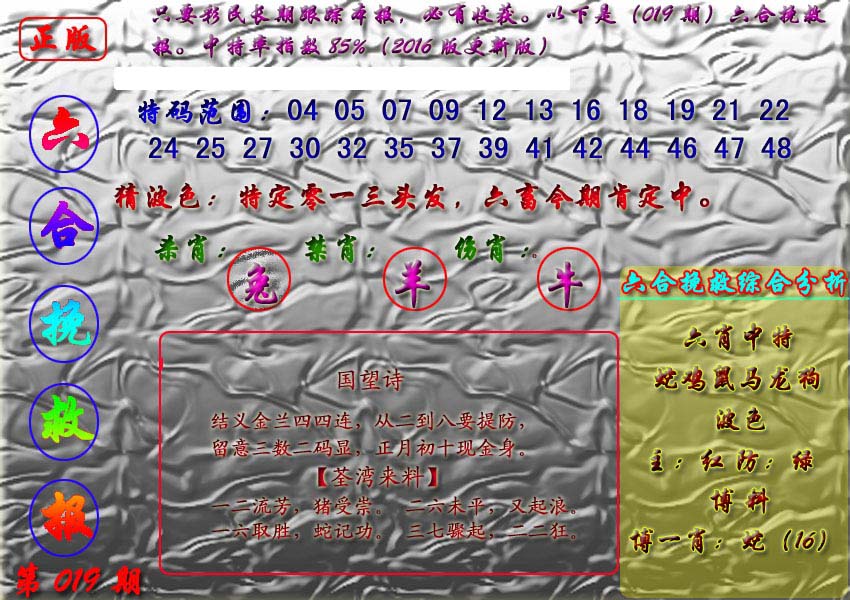 正版
只要彩民长期跟踪本报，必有收获。以下是（019期）六合挽救
报。中特率指数85%（2016版更新版）
六合挽救报
第019期
特码范围：04 05 07 09 12 13 16 18 19 21 22
24 25 27 30 32 35 37 39 41 42 44 46 47 48
猜波色：特定零一三头发，六畜今期肯定中。
杀肖：兔 禁肖：羊 伤肖：牛
国望诗
结义金兰四四连，从二到八要提防，
留意三数二码显，正月初十现金身。
【荃湾来料】
一二流芳，猪受崇。 二六未平，又起浪。
一六取胜，蛇记功。 三七骤起，二二狂。
六合挽救综合分析
六肖中特
蛇鸡鼠马龙狗
波色
主：红防：绿
博料
博一肖：蛇（16）